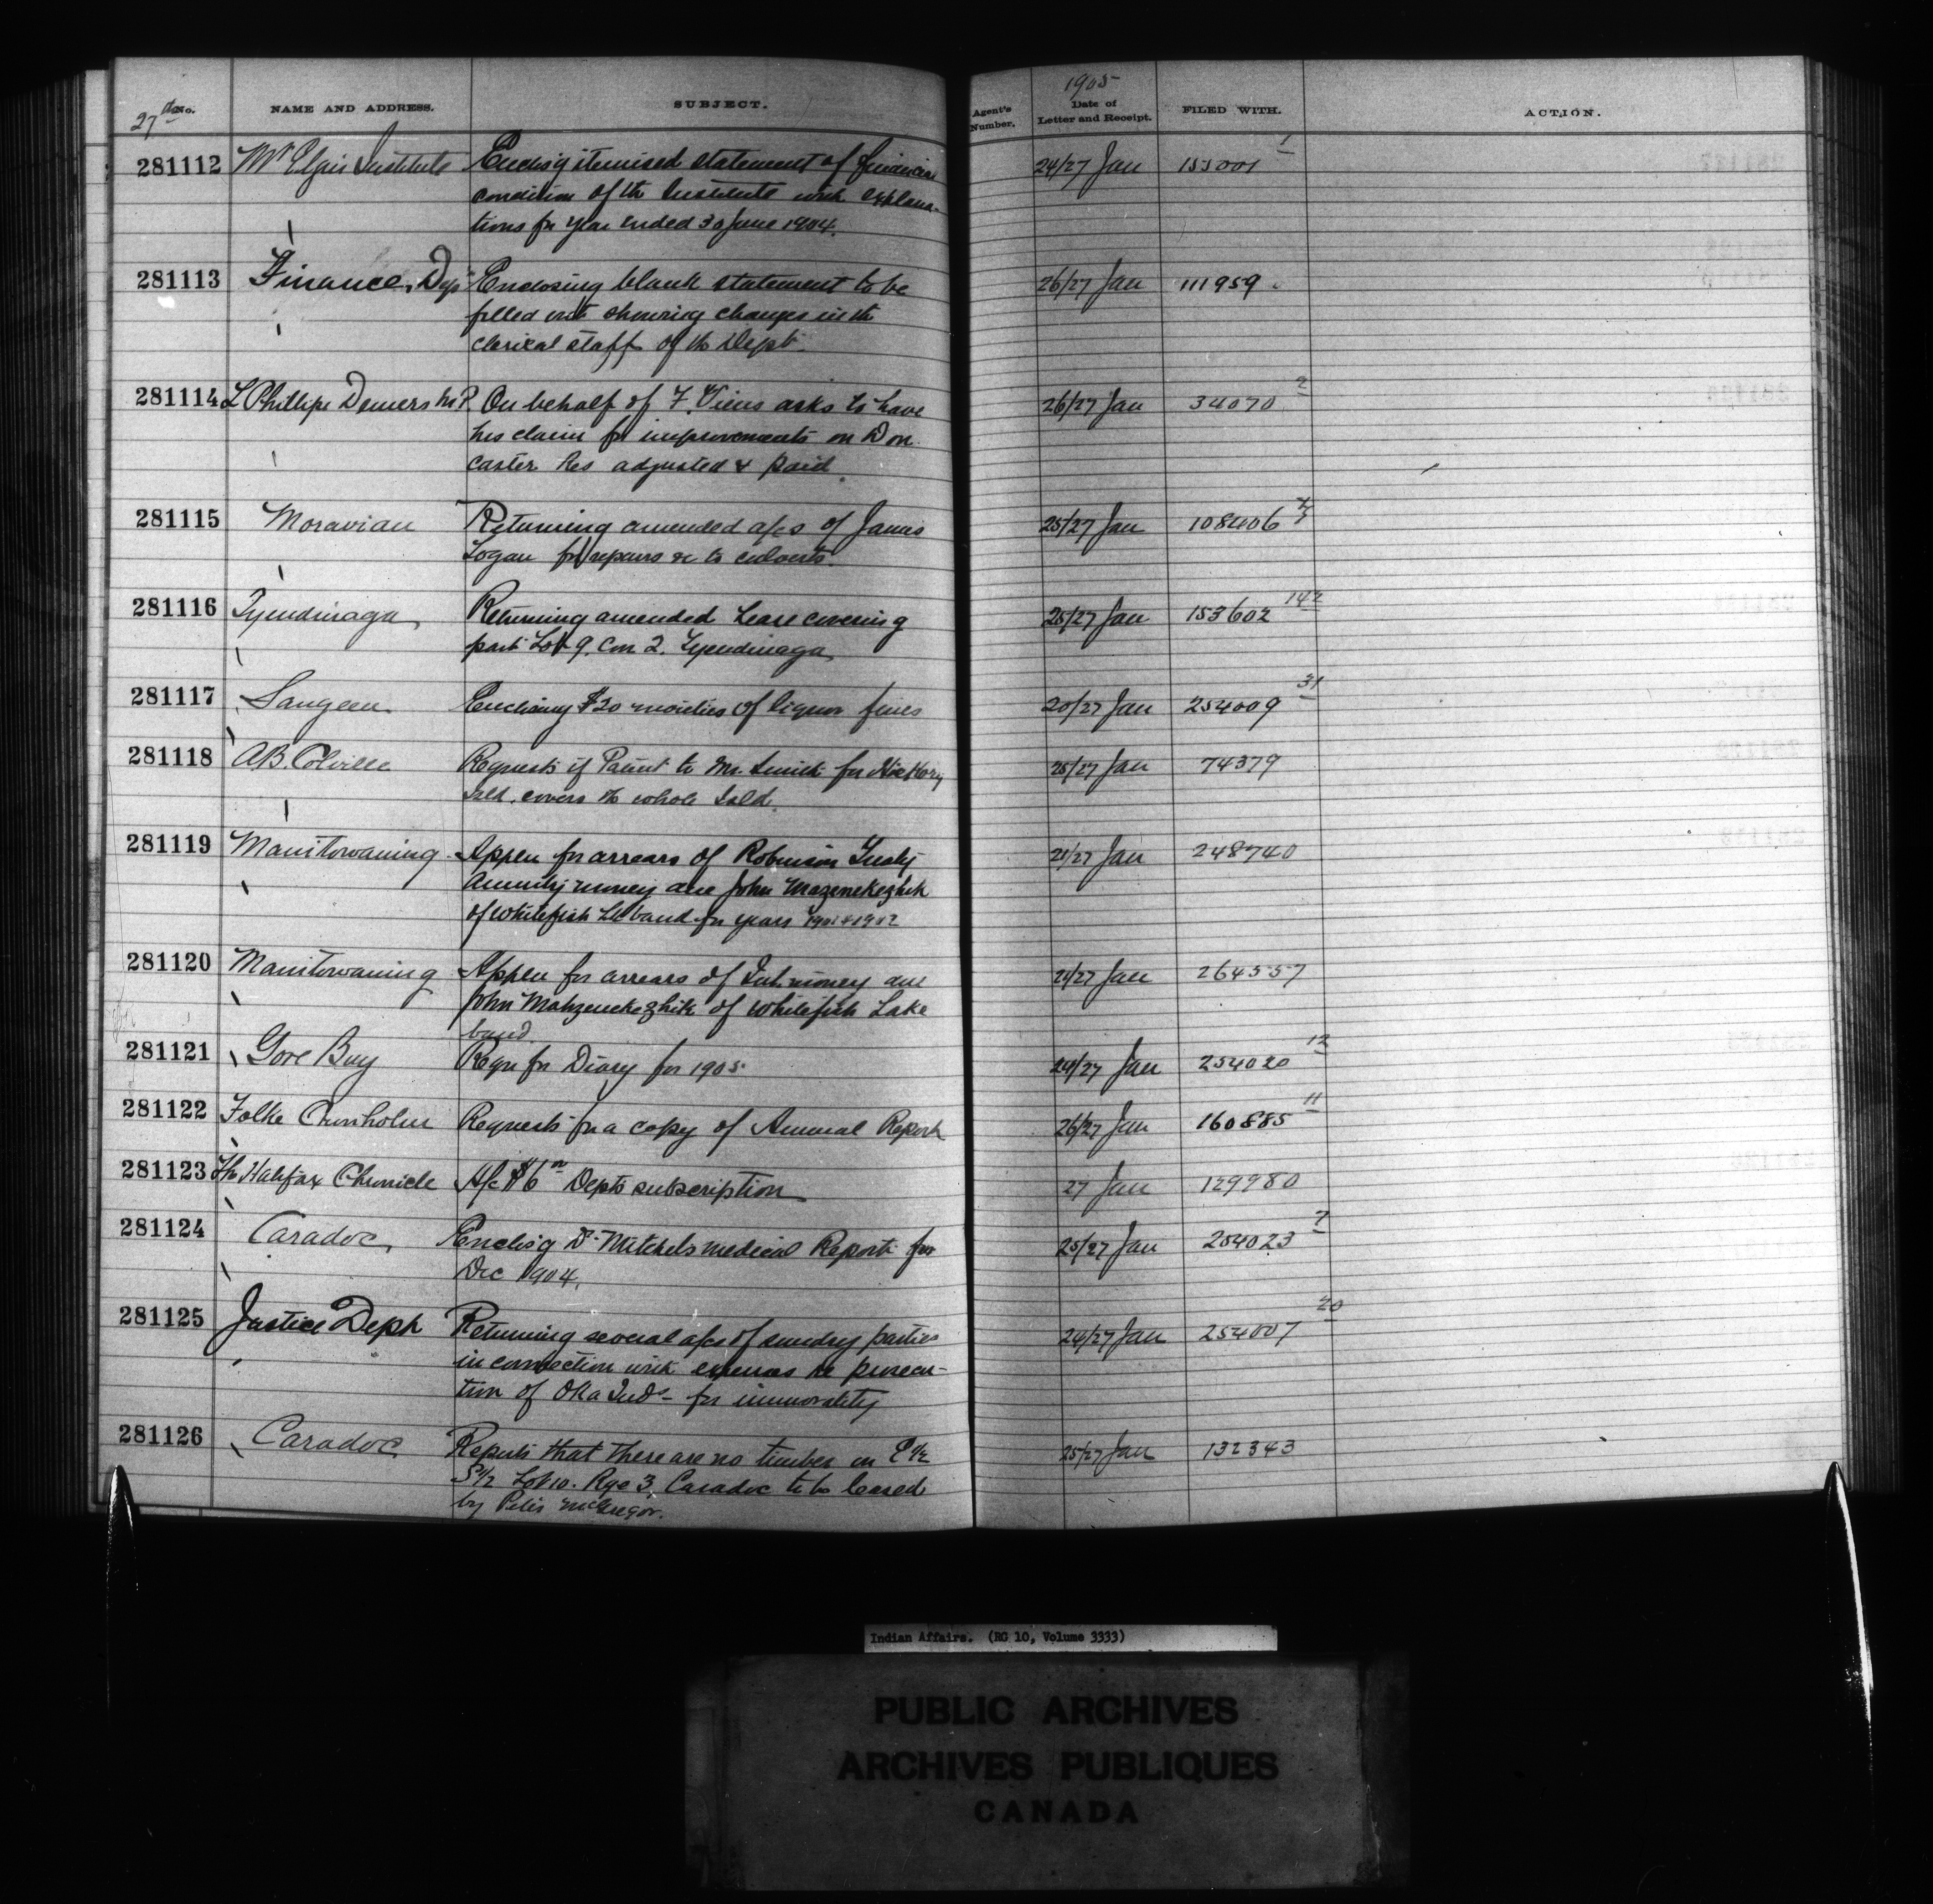 1905
27th No. NAME AND ADDRESS. SUBJECT. Agent's Number. Date of Letter and Receipt. FILED WITH. ACTION.
281112 Mt Elgin Institute Enclos'g itemised statement of financial 24/27 Jan 155001 1
condition of the Institute with explana-
tions for year ended 30 June 1904.
281113 Finance, Dept Enclosing blank statement to be 26/27 Jan 111959
filled out showing changes in the
clerical staff of the Dept.
281114 L Phillipe Demers M.P. On behalf of F. Viens asks to have 26/27 Jan 34070 2
his claim for improvements on Don
caster Res adjusted & paid
281115 Moravian Returning amended a/cs of James 25/27 Jan 108406
Logan for repairs &c to culverts.
281116 Tyendinaga Returning amended Lease covering 25/27 Jan 153602 142
part Lot 9. Con 2. Tyendinaga
281117 Saugeen Enclosing $20 moieties of liquor fines 20/27 Jan 254009 31
281118 A.B. Colville Requests if Patent to Mr. Smith for Hickory 25/27 Jan 74379
Isld. covers the whole Isld.
281119 Manitowaning Appln for arrears of Robinson Treaty 21/27 Jan 248740
Annuity money due John Mazenekezhik
of Whitefish Lk band for years 1901 & 1902
281120 Manitowaning Appln for arrears of Int. money due 21/27 Jan 264557
John Mahzenekezhik of Whitefish Lake
band
281121 Gore Bay Reqn for Diary for 1905 24/27 Jan 254020 12
281122 Folke Cronholm Requests for a copy of Annual Report 26/27 Jan 160885 11
281123 The Halifax Chronicle A/c $6 00 Depts subscription 27 Jan 129980
281124 Caradoc Enclos'g Dr. Mitchels medical Report for 25/27 Jan 254023 7
Dec 1904.
281125 Justice Dept Returning several a/cs of sundry parties 24/27 Jan 254007 20
in connection with expenses re prosecu-
tion of Oka Inds - for immorality
281126 Caradoc Reports that there are no timber on E 1/2 25/27 Jan 132343
S 1/2 Lot 10. Rge 3. Caradoc to be leased
by Peter McGregor.
Indian Affairs. (RG 10, Volume 3333)
PUBLIC ARCHIVES
ARCHIVES PUBLIQUES
CANADA